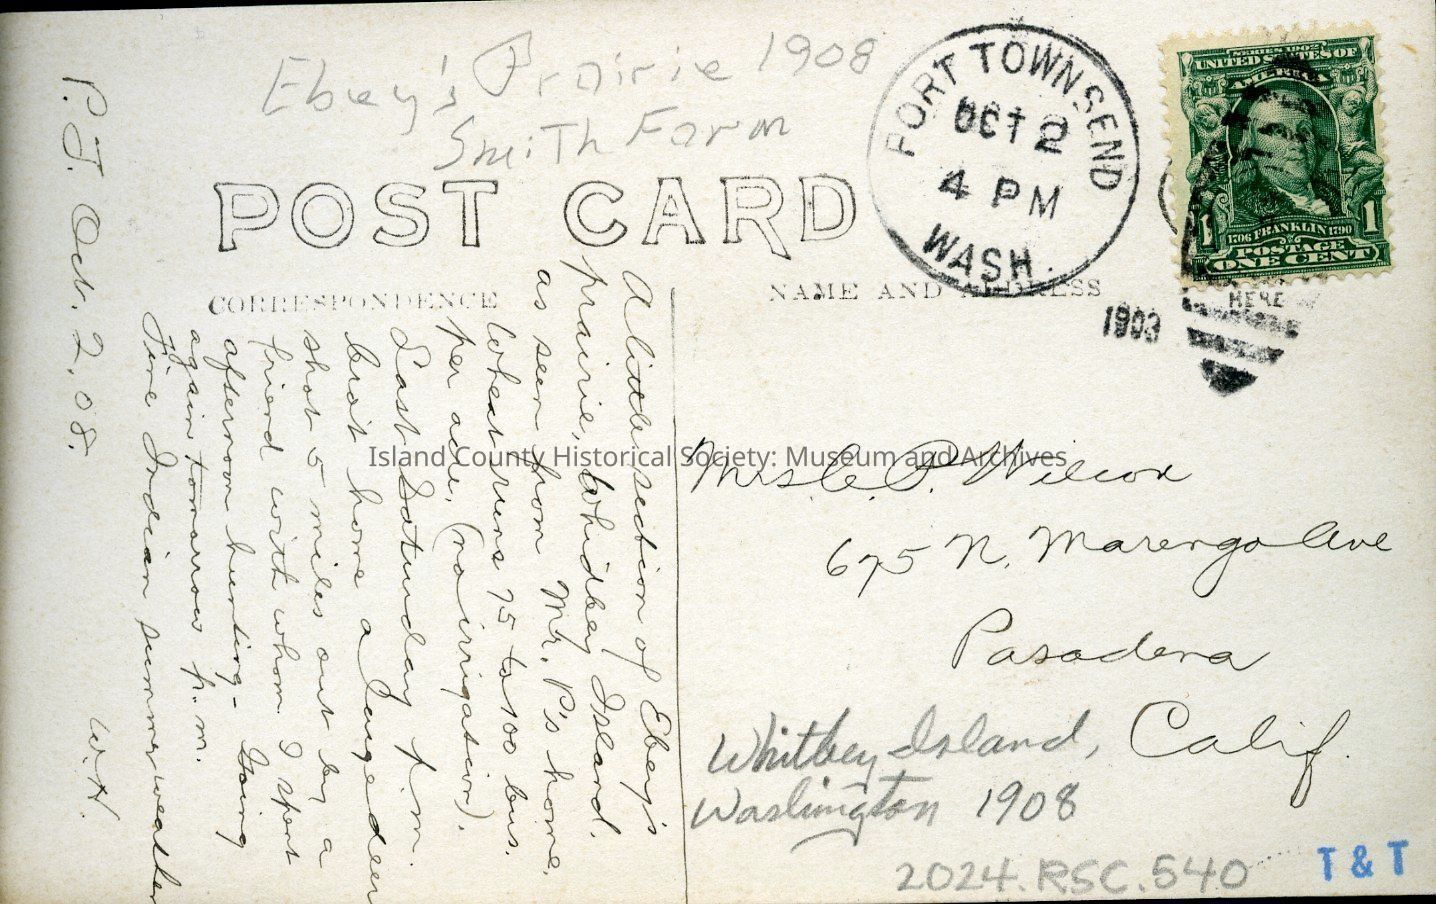 Ebey's Prairie 1908
Smith Farm
POST CARD
CORRESPONDENCE
NAME AND ADDRESS
PORT TOWNSEND
OCT 2
4 PM
WASH.
1908
SERIES 1902
UNITED STATES OF
AMERICA
1706 FRANKLIN 1790
1 1
POSTAGE
ONE CENT
HERE
P.T. Oct. 2, 08.
A little section of Ebey's
prairie, Whidbey Island.
as seen from Mr. P's home.
Wheat runs 75 to 100 bus.
per acre. (no irrigation).
Last Saturday p.m.
brot home a large deer
shot 5 miles out by a
friend with whom I spent
afternoon hunting- Going
again tomorrow p.m.
Fine Indian summer weather
W.H.
Island County Historical Society: Museum and Archives
Mrs. C. P. Wilcox
675 N. Marengo Ave
Pasadena
Calif.
Whitbey Island,
Washington 1908
2024.RSC.540
T & T